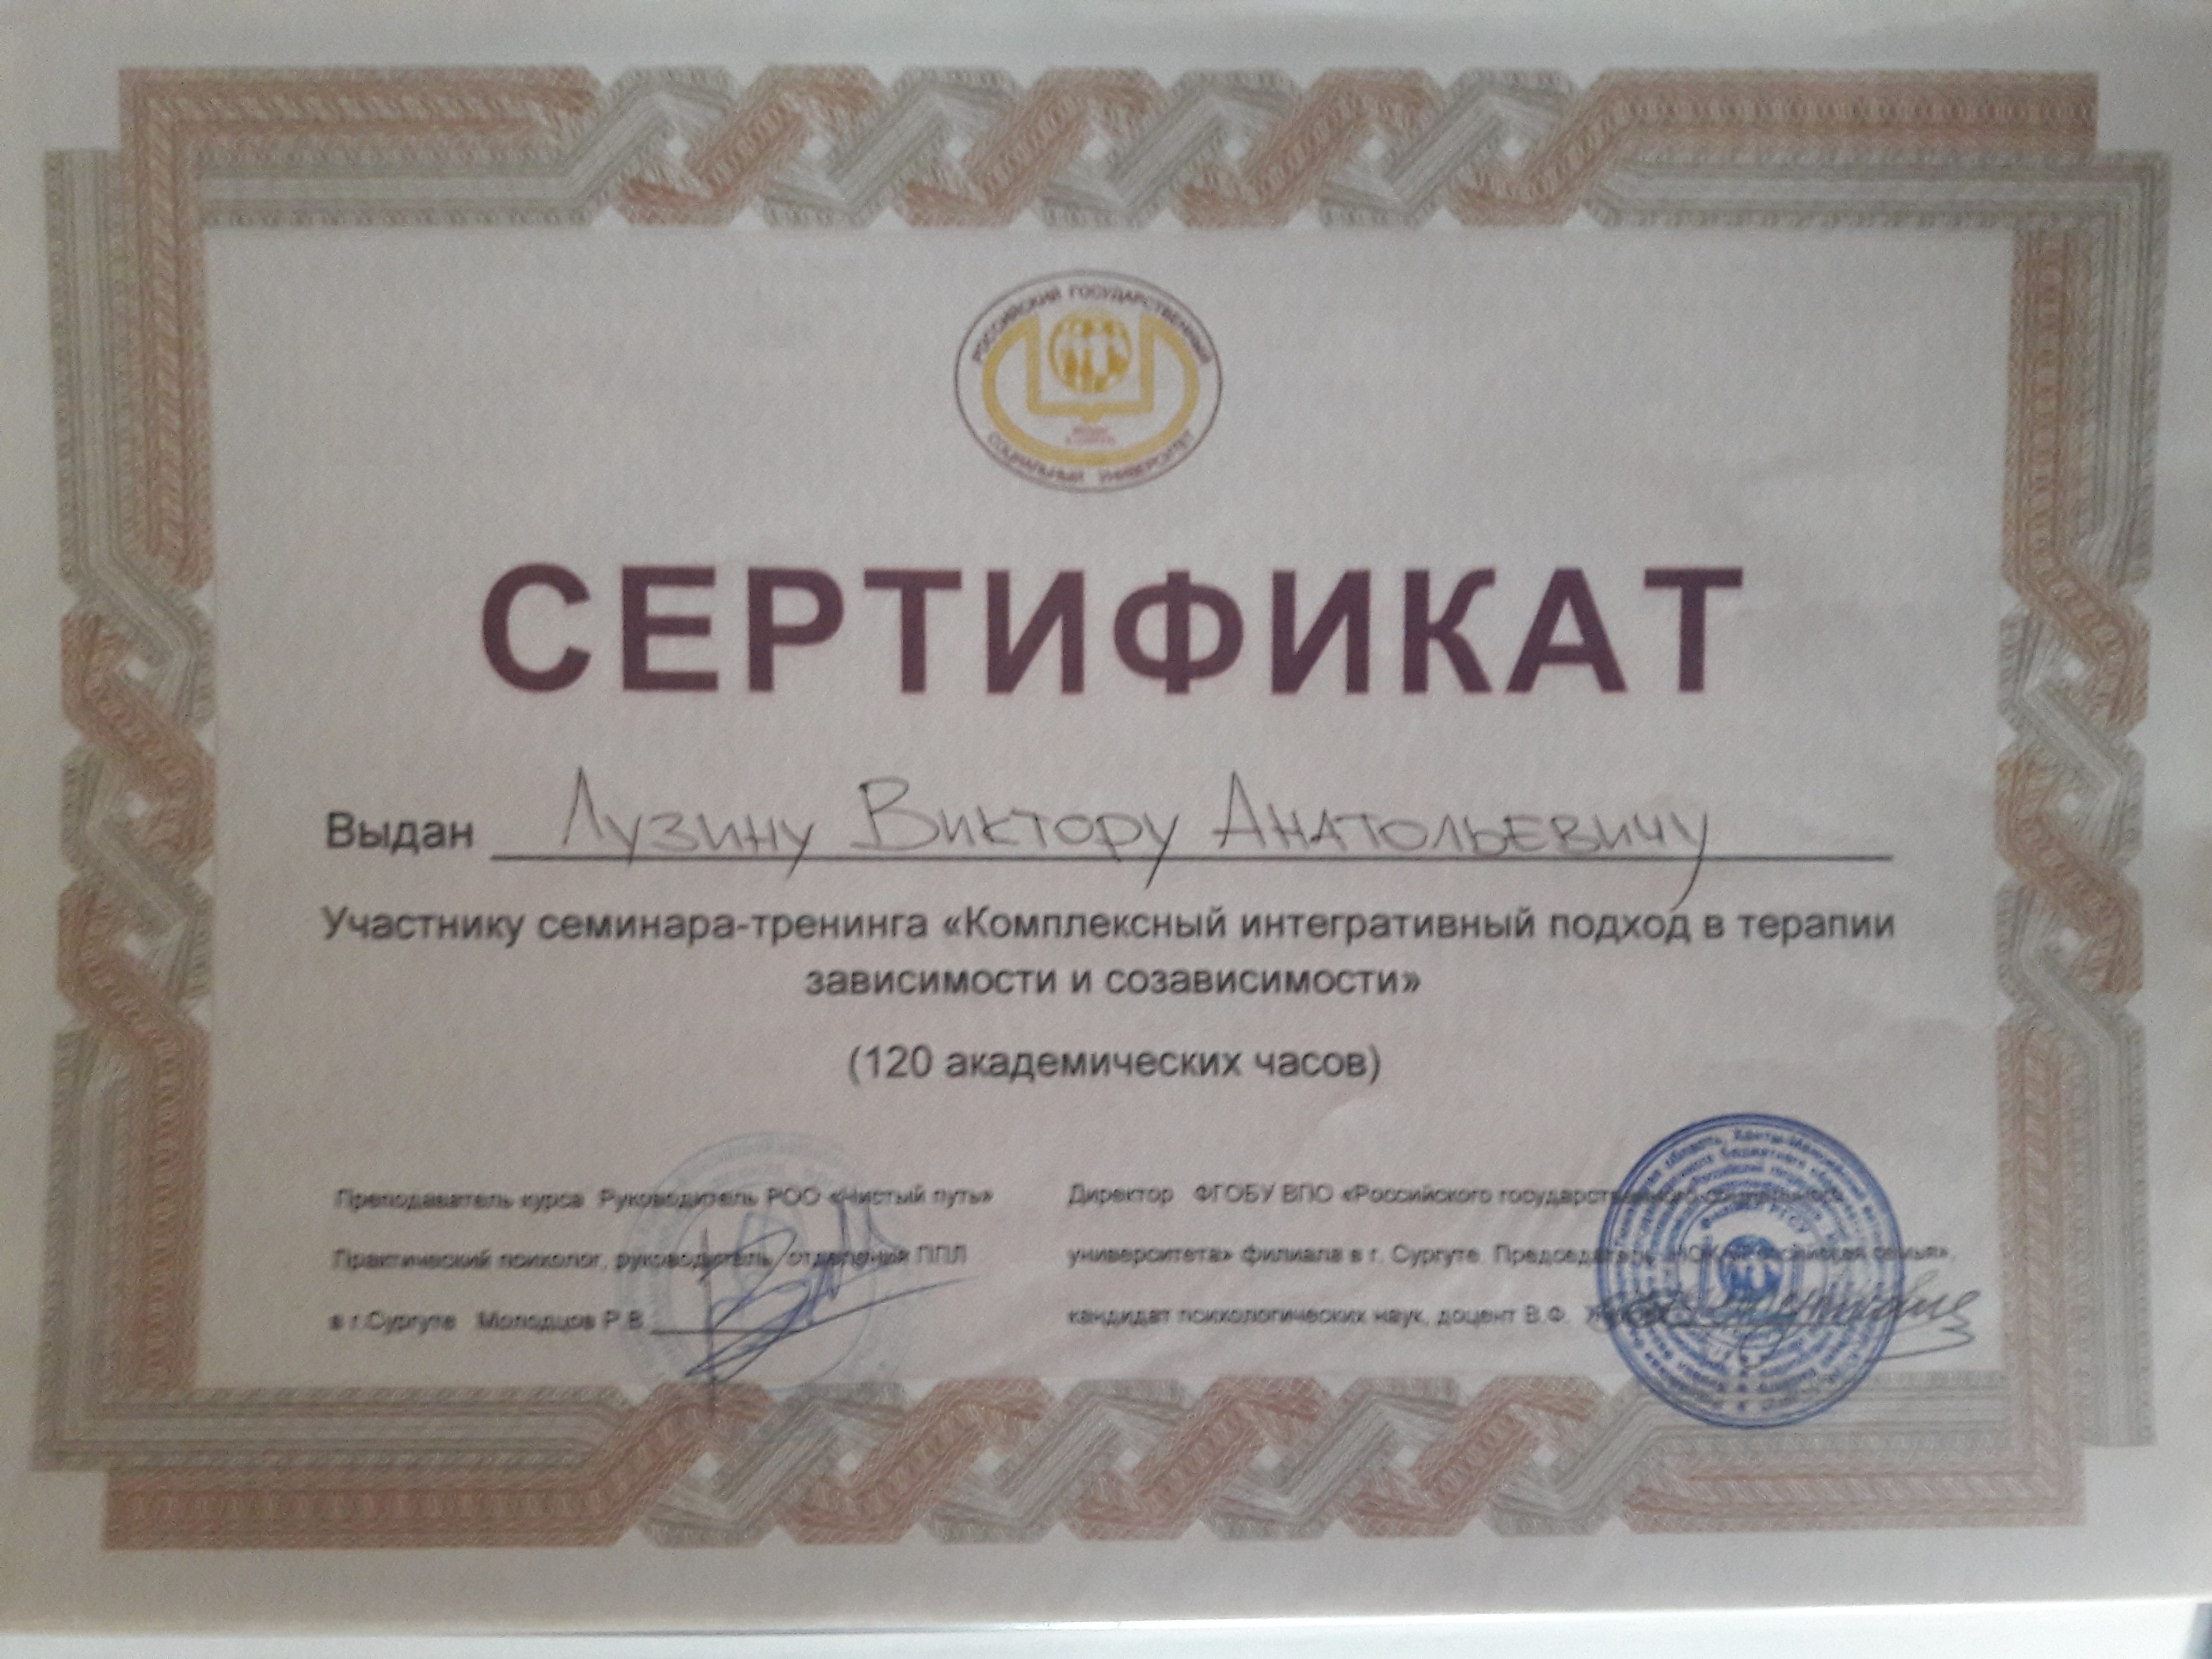 РОССИЙСКИЙ ГОСУДАРСТВЕННЫЙ
СОЦИАЛЬНЫЙ УНИВЕРСИТЕТ
СЕРТИФИКАТ
Выдан Лузину Виктору Анатольевичу
Участнику семинара-тренинга «Комплексный интегративный подход в терапии
зависимости и созависимости»
(120 академических часов)
Преподаватель курса Руководитель РОО «Чистый путь»
Практический психолог, руководитель отделения ППЛ
в г.Сургуте Молодцов Р.В.
Директор ФГОБУ ВПО «Российского государственного социального
университета» филиала в г. Сургуте. Председатель семья».
кандидат психологических наук, доцент В.Ф.